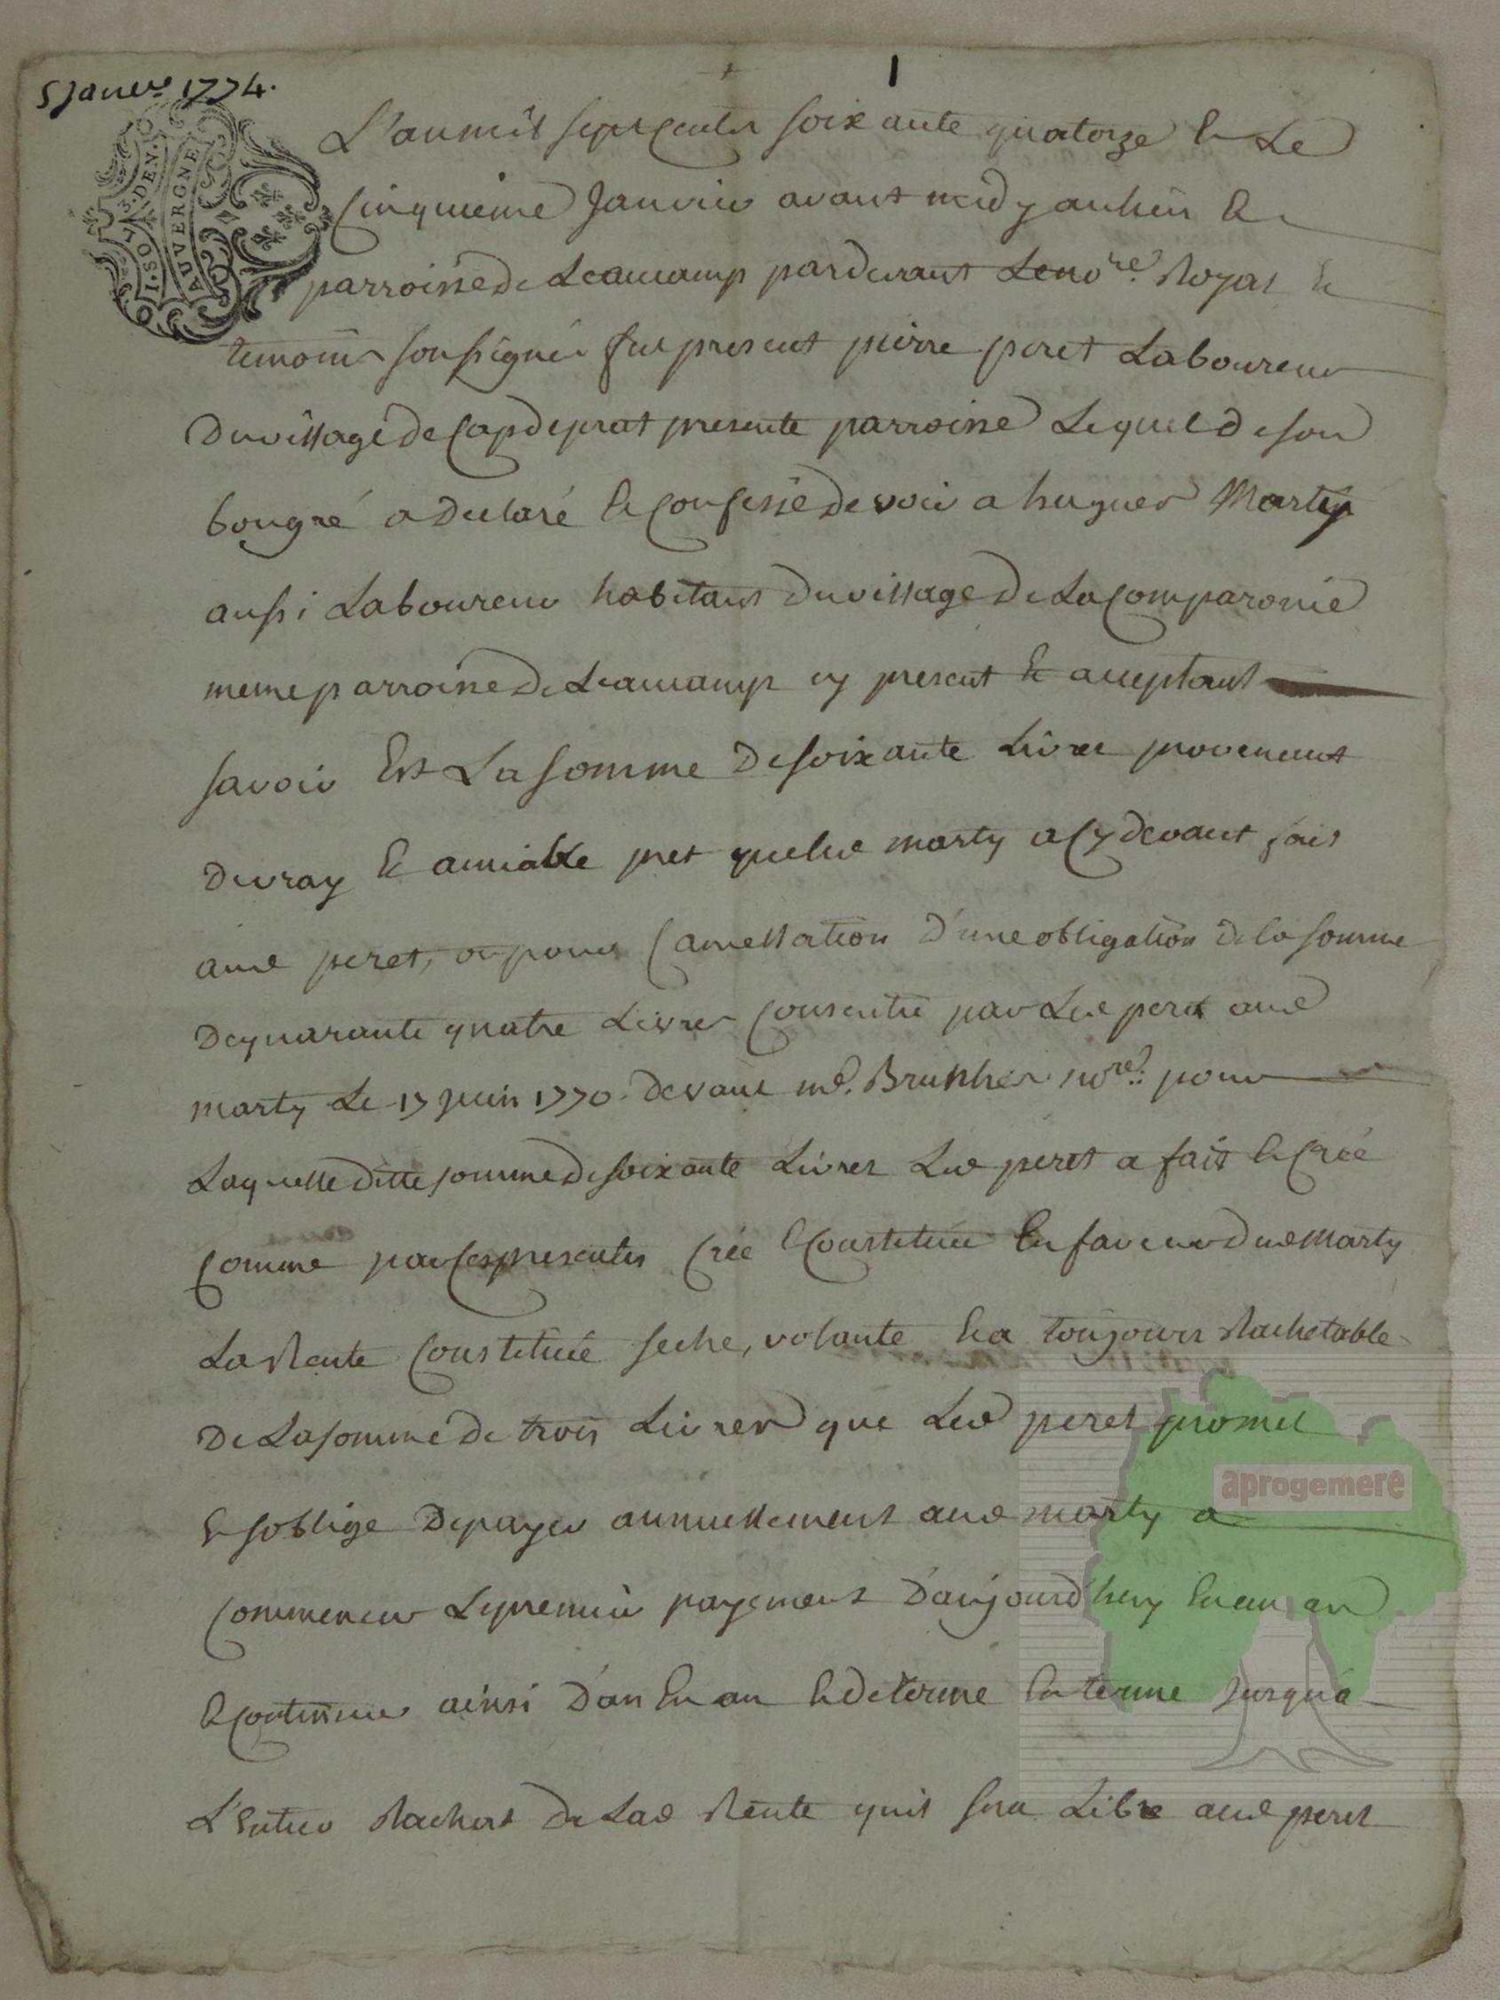 5 Janvr. 1774.
1
1.SOL.3.DEN.
AUVERGNE
L'an mil sept cents soixante quatorze & Le
Cinquieme Janvier avant midy au lieu &
parroisse de Leaucamp pardevant Le nore. Royal &
temoins soussignés fut present pierre peret Laboureur
Du village de Capdeprat presente parroisse Lequel de son
bon gré a declaré & Confessé devoir a hugues Marty
aussi Laboureur habitant Du village De La Comparonie
meme parroisse De Leaucamp cy present & acceptant
savoir Est La somme De soixante Livres provenent
Du vray & amiable pret que led marty a Cy devant fait
aud peret, ou pour Cancellation d'une obligation de la somme
De quarante quatre Livres Consentie par Led peret aud
marty Le 17 juin 1770. devant me. nore. pour
Laquelle ditte somme De soixante Livres Led peret a fait & Crée
Comme par Ces presentes Crée & Constitue En faveur dud Marty
La Rente Constituée seche, volante & a toujours Rachetable
De La somme De trois Livres que Led peret promet
& soblige De payer annuellement aud marty a
Commencer Le premier payement D'aujourd'huy En un an
& Continuer ainsi D'an En an & de terme En terme jusqu'a
L'Entier Rachat De Lad Rente qu'il sera Libre aud peret
aprogemere